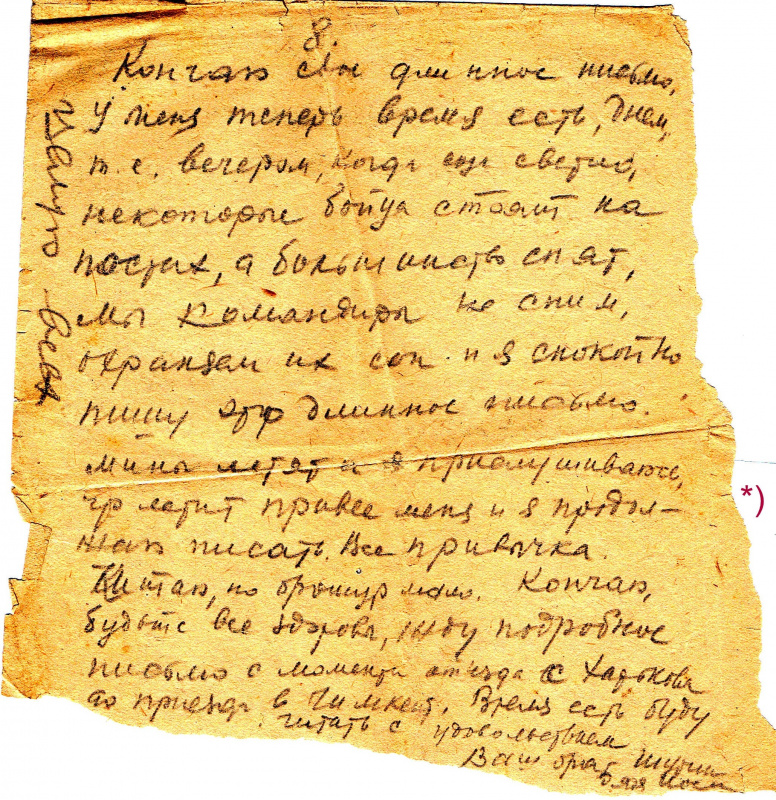 8.
Кончаю свое длинное письмо,
У меня теперь время есть, днем,
т.е. вечером, когда еще светло,
некоторые бойца стоят на
постах, а большинство спят,
мы командиры не спим,
охраняем их сон и я спокойно
пишу это длинное письмо.
мины летят и я прислушиваюсь,
летит правее меня и я продол-
жаю писать. Все привычка.
Читаю, но брошюр мало. Кончаю,
будьте все здоровы, жду подробное
письмо с момента отъезда с Харькова
до приезда в Чимкент. Время есть буду
читать с удовольствием
Ваш брат
дядя
Целую всех
*)